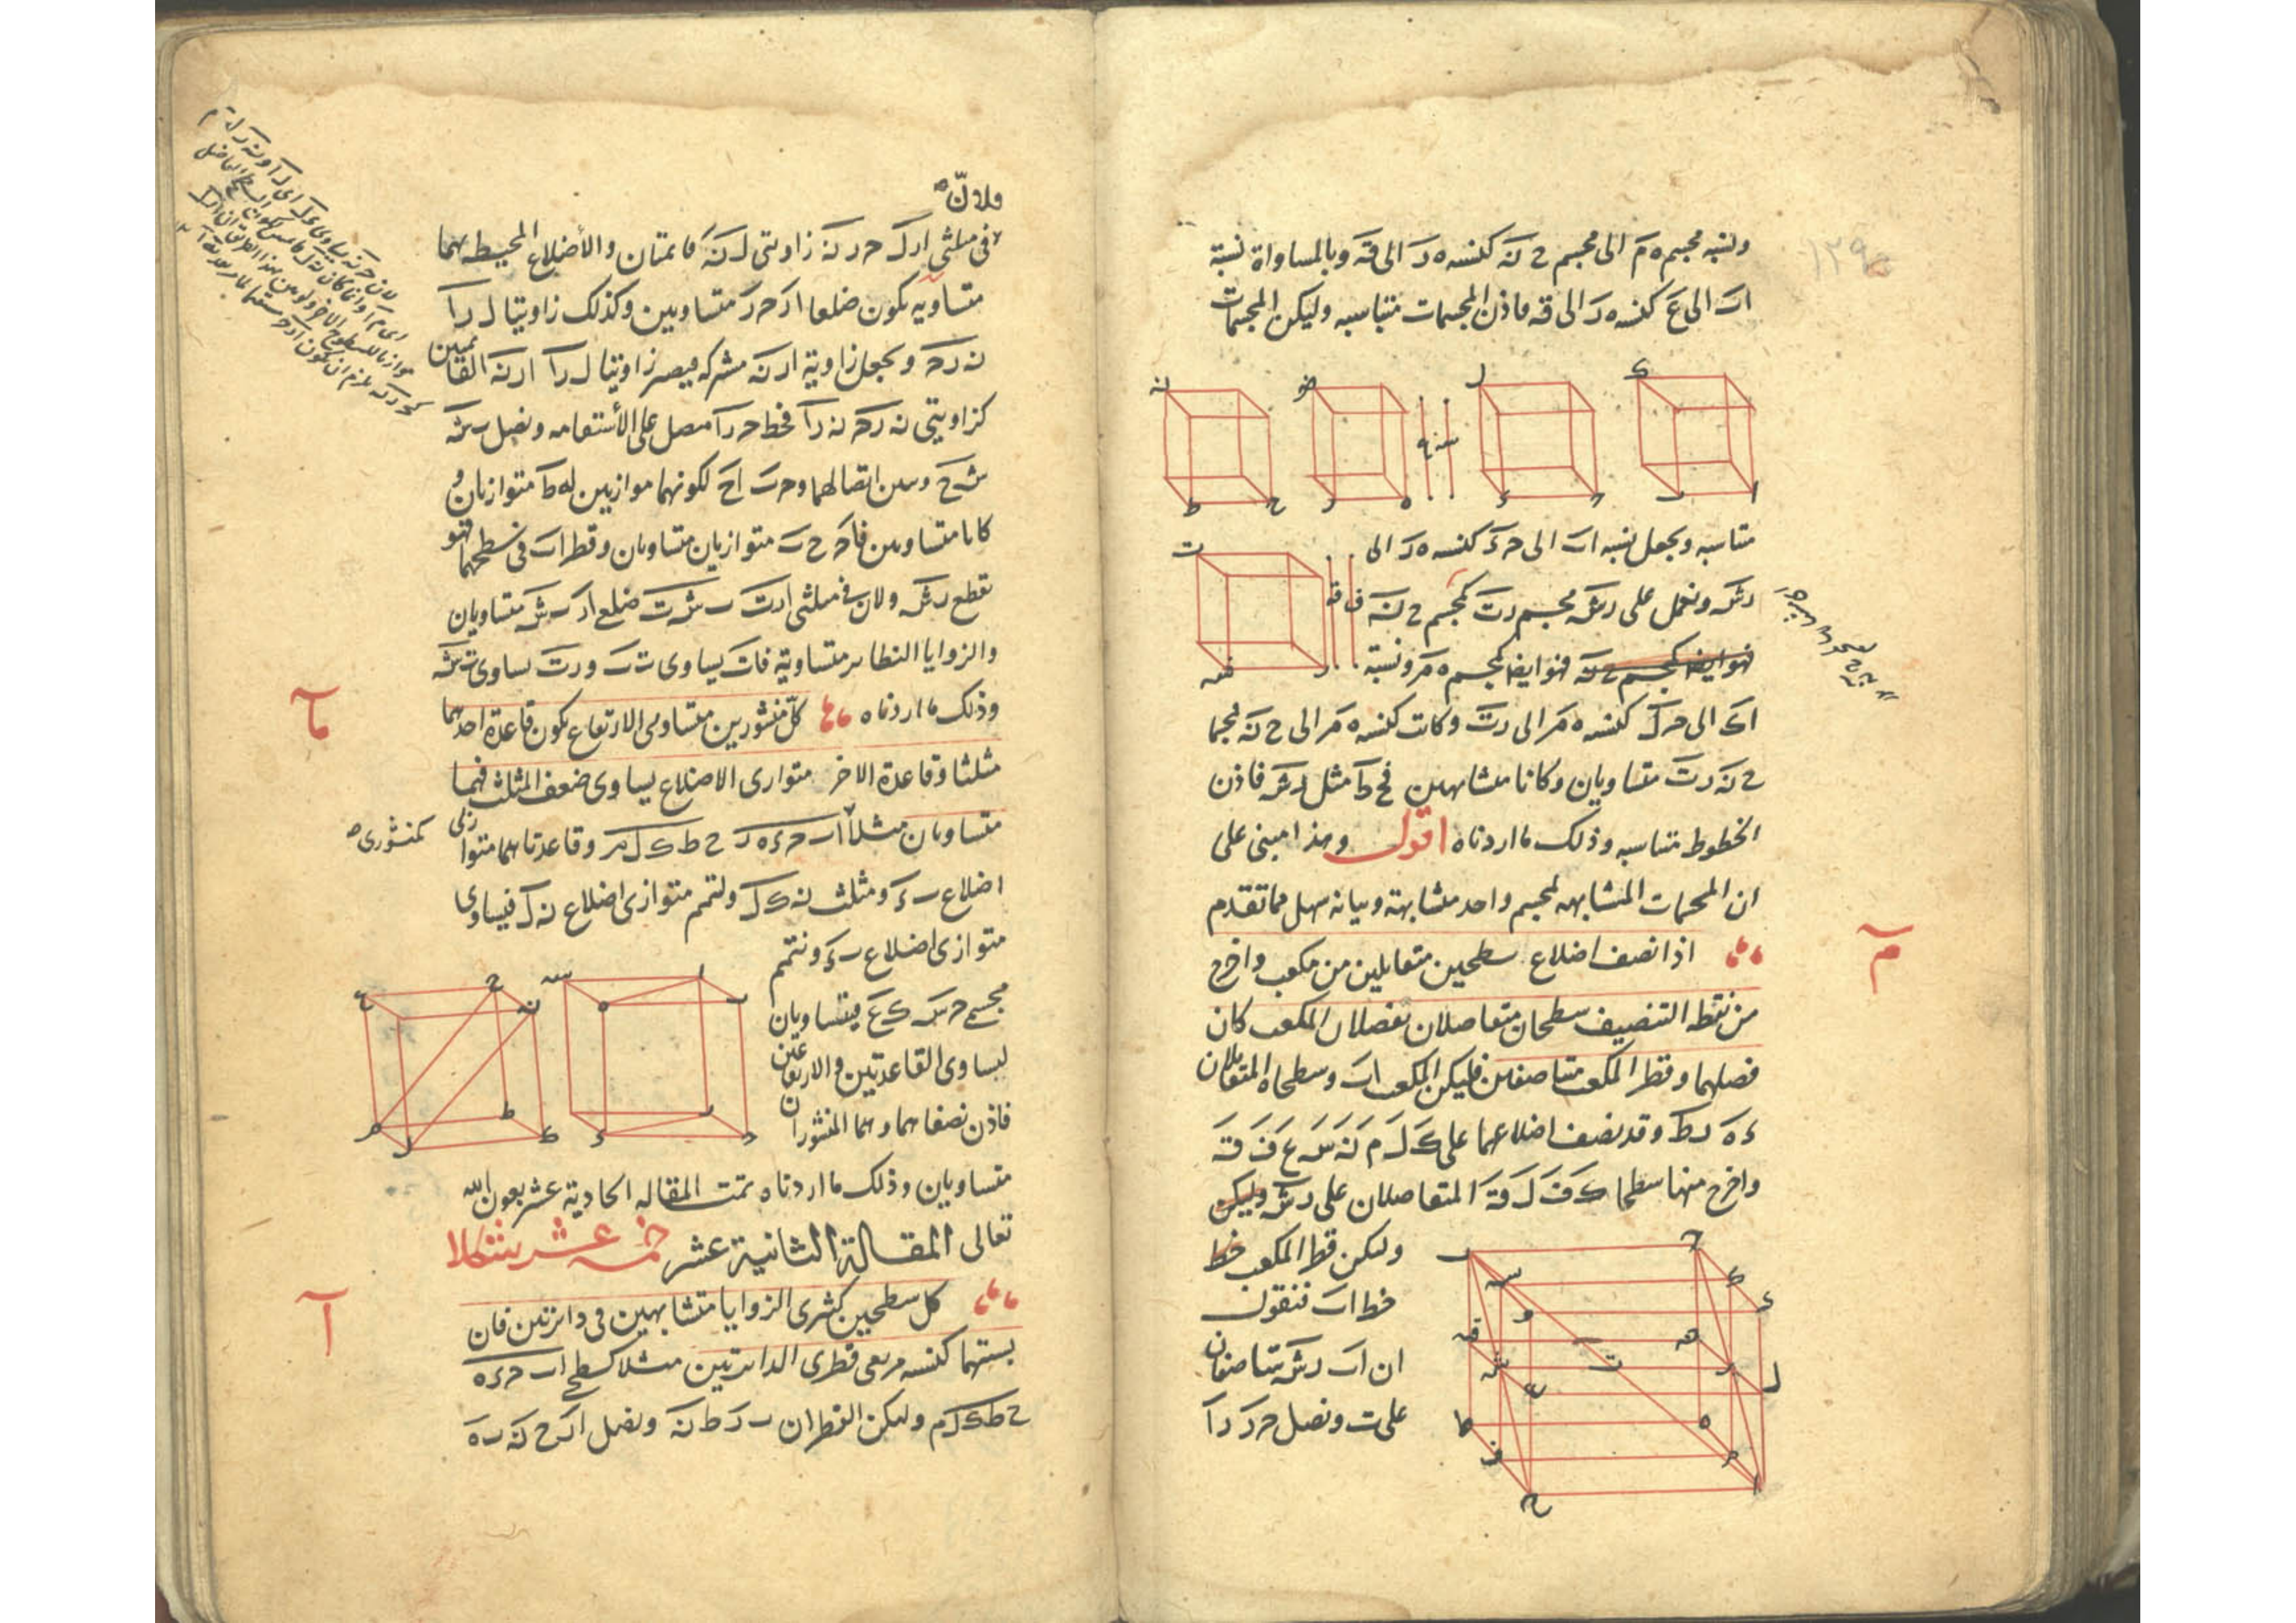 ونسبة مجسم ه م الى مجسم ح نه كنسبة ه ر الى قه وبالمساواة نسبة
اب الى ع كنسبة ه ر الى قه فاذن المجسمات متناسبة وليكن المجسمات
متناسبة ونجعل نسبة اب الى حد كنسبة ه ر الى
رش ونعمل على رش مجسم رت كمجسم ح نه
فهو ايضا كمجسم ه م ونسبة
اك الى حل كنسبة ه م الى رت وكانت كنسبة ه م الى ح نه فمجسما
ح نه رت متساويان وكانا متشابهين فح ط مثل رش فاذن
الخطوط متناسبة وذلك ما اردناه اقول وهذا مبنى على
ان المجسمات المشابهة لمجسم واحد متشابهة وبيانه سهل مما تقدم
م
اذا نصف اضلاع سطحين متقابلين من مكعب واخرج
من نقط التنصيف سطحان متفاصلان يفصلان المكعب كان
فصلهما وقطر المكعب متناصفين فليكن المكعب اب وسطحاه المتقابلان
ءه رط وقد نصف اضلاعهما على ك ل م نه س ع ف قه
واخرج منها سطحا ك ف ل قه المتفاصلان على رش
وليكن قطر المكعب خط
خط اب فنقول
ان اب رش متناصفان
على ت ونصل حر را
ولان
فى مثلثى ارل حر نه زاويتى ل نه قائمتان والاضلاع المحيطة بهما
متساوية يكون ضلعا ار حر متساويين وكذلك زاويتا ل را
نه رح ونجعل زاوية ار نه مشتركة فيصير زاويتا ل را ار نه القائمتين
كزاويتى نه رح نه را فخط حر را متصل على الاستقامة ونصل ب ش
ش ح ونبين اتصالهما وحب اح لكونهما موازيين له ط متوازيان و
كانا متساويين فاح ح ب متوازيان متساويان وقطر اب فى سطحهما فهو
يقطع رش ولان فى مثلثى ارت ب ش ت ضلع ار ب ش متساويان
والزوايا النظائر متساوية فات يساوى ت ب ورت يساوى ت ش
وذلك ما اردناه كل منشورين متساويى الارتفاع يكون قاعدة احدهما
ما
مثلثا وقاعدة الاخر متوازى الاضلاع يساوى ضعف المثلث فهما
متساويان مثلا اب حده ر ح ط ك ل م وقاعدتاهما متوازى
كمنشورى
اضلاع ب ء ومثلث نه ك ل ولتتمم متوازى اضلاع نه ل فيساوى
متوازى اضلاع ب ء ونتمم
مجسمى ح س ك ع فيتساويان
لتساوى القاعدتين والارتفاعين
فاذن نصفاهما وهما المنشوران
متساويان وذلك ما اردناه تمت المقالة الحادية عشر بعون الله
تعالى المقالة الثانية عشر خمسة عشر شكلا
ا
كل سطحين كثيرى الزوايا متشابهين فى دائرتين فان
نسبتهما كنسبة مربعى قطرى الدائرتين مثلا كسطحى اب حءه
ح ط ك ل م وليكن القطران ب ر ط نه ونصل ار ح نه ب ه